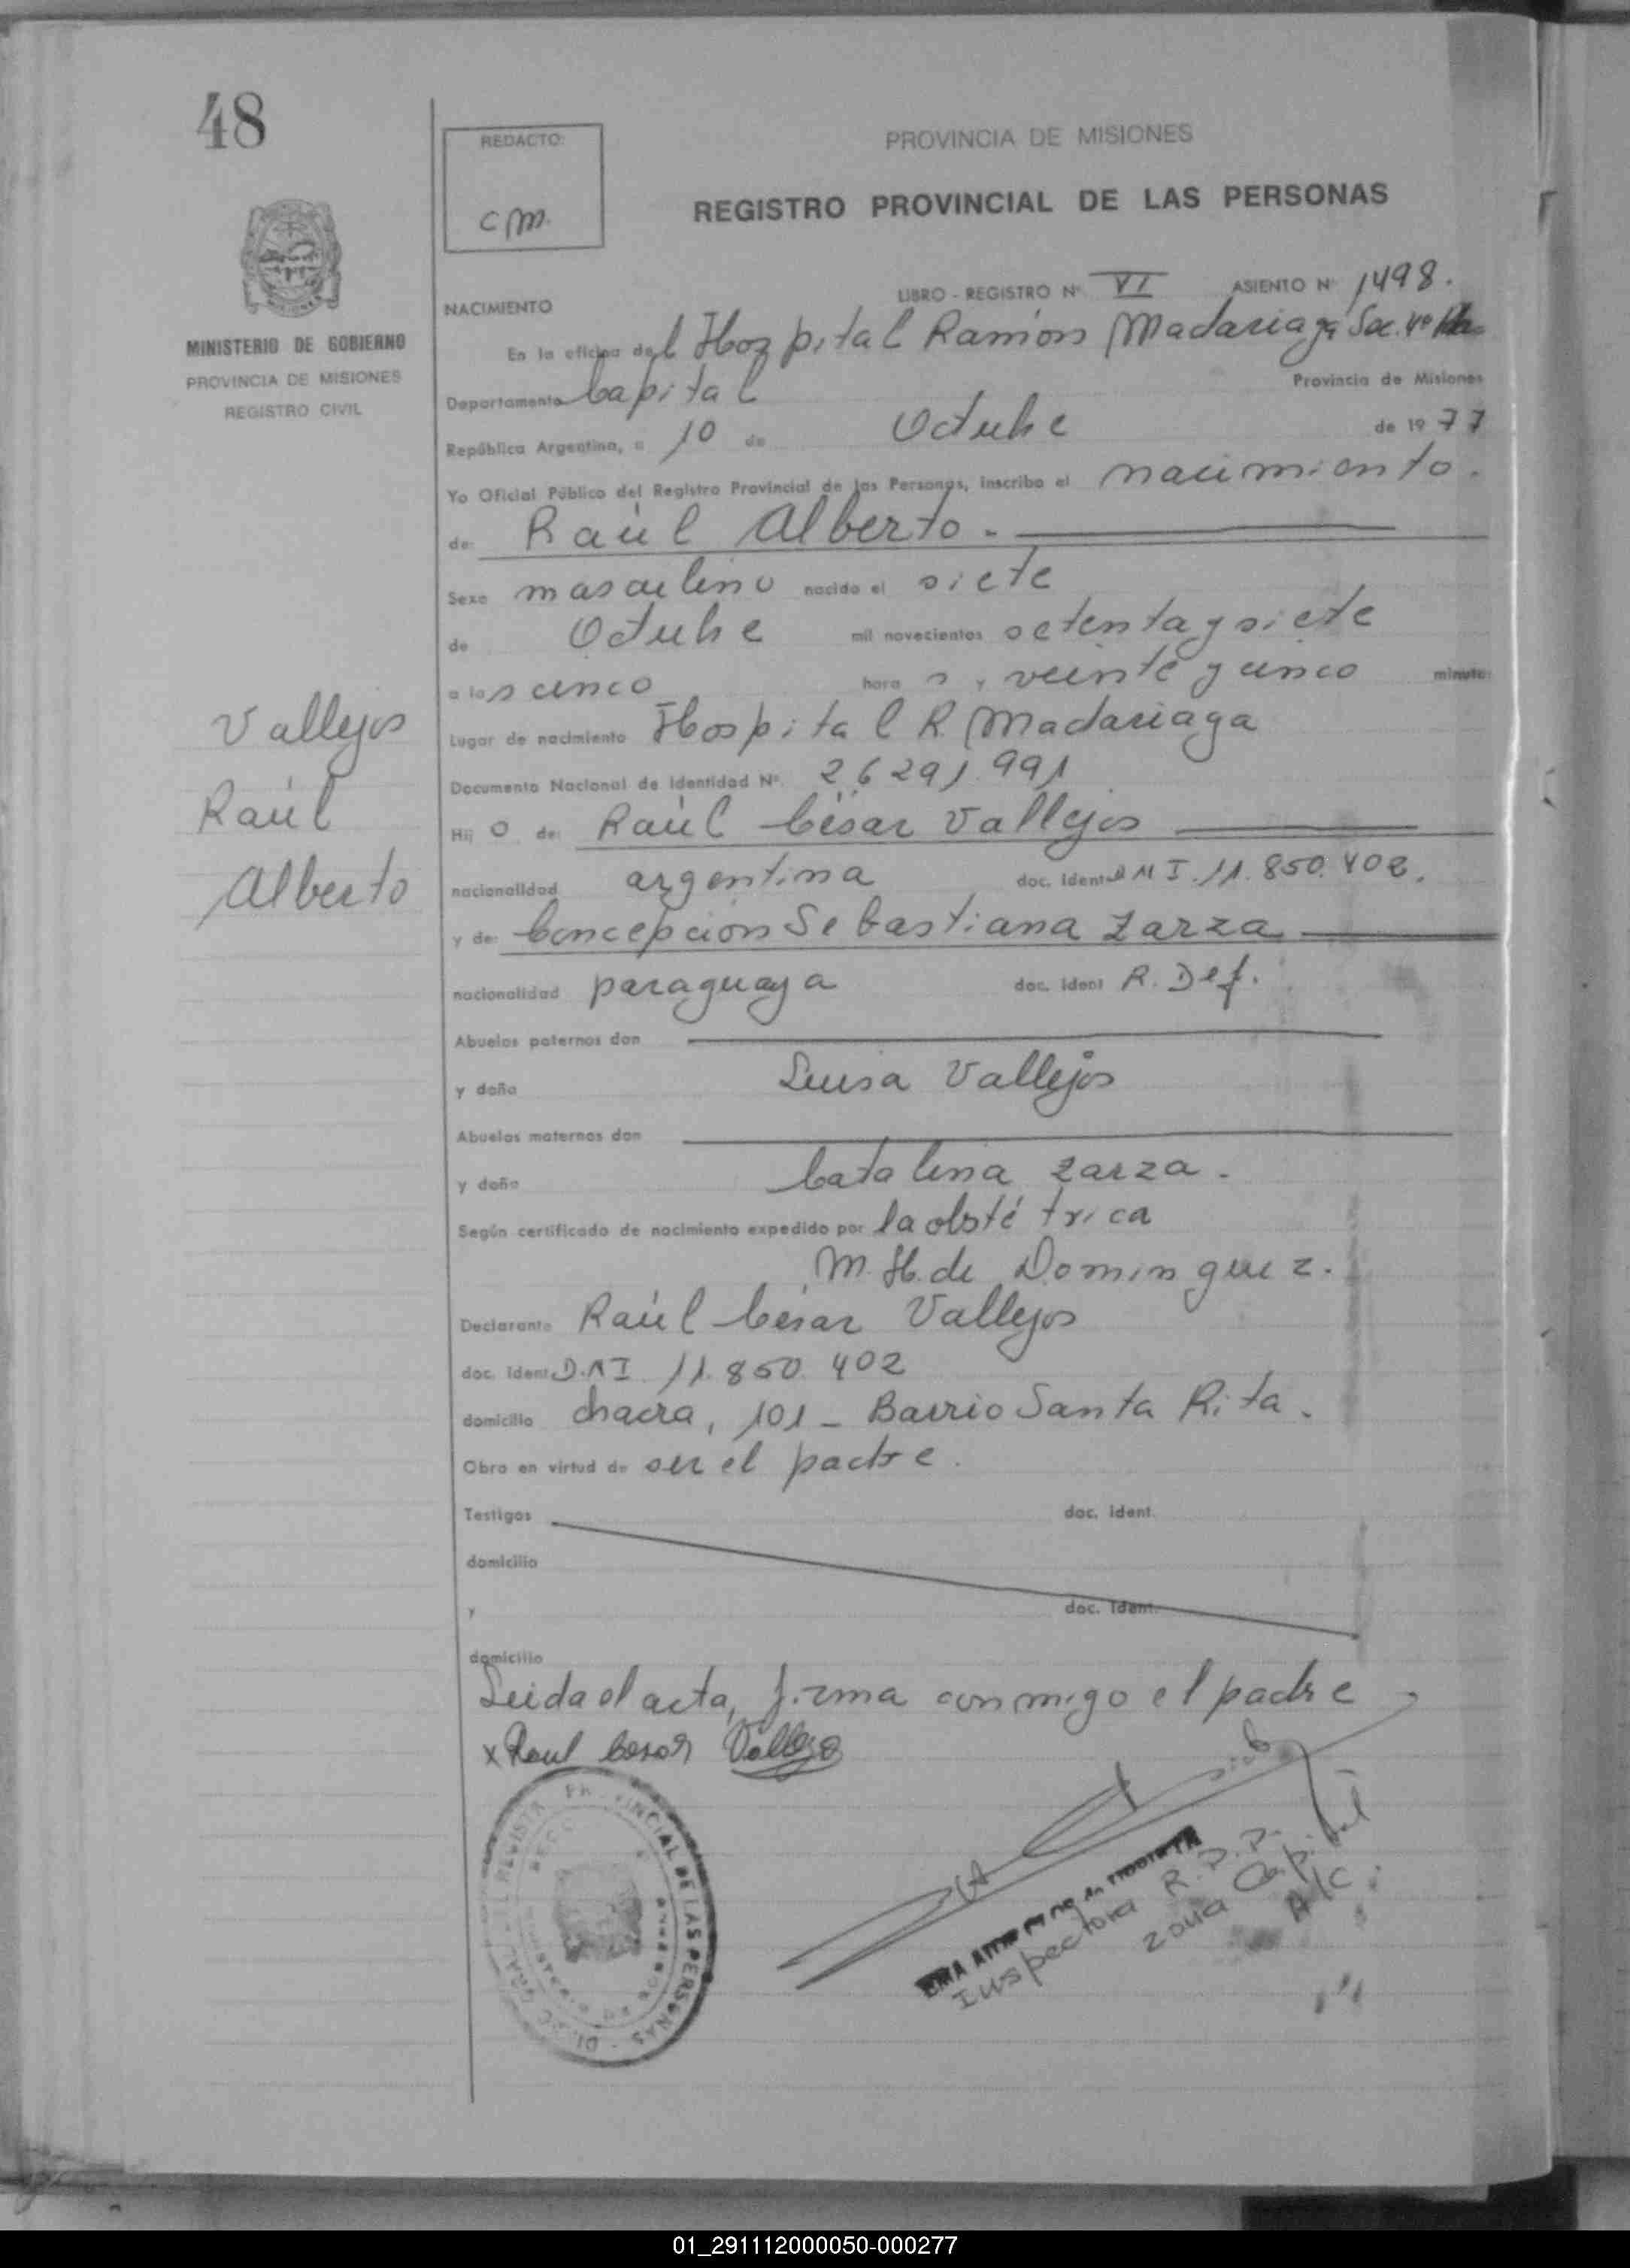 48
REDACTO:
CM.
PROVINCIA DE MISIONES
REGISTRO PROVINCIAL DE LAS PERSONAS
MINISTERIO DE GOBIERNO
PROVINCIA DE MISIONES
REGISTRO CIVIL
LIBRO - REGISTRO Nº VI ASIENTO Nº 1498.
NACIMIENTO
En la oficina del Hospital Ramón Madariaga Sec. 4º
Provincia de Misiones
Departamento Capital
República Argentina, a 10 de Octubre de 1977
Yo Oficial Público del Registro Provincial de las Personas, inscribo el nacimiento.
de: Raúl Alberto.
Sexo masculino nacido el siete
de Octubre mil novecientos setenta y siete
a las cinco hora s y veinte y cinco minutos
Lugar de nacimiento Hospital R. Madariaga
Documento Nacional de Identidad Nº. 26291.991
Hij o de: Raúl César Vallejos
nacionalidad argentina doc. Ident. DNI. 11.850.402.
y de: Concepción Sebastiana Zarza
nacionalidad paraguaya doc. ident R. Def.
Abuelos paternos don
y doña Luisa Vallejos
Abuelos maternos don
y doña Catalina Zarza.
Según certificado de nacimiento expedido por la obstétrica
M. H. de Dominguez.
Declarante Raúl César Vallejos
doc. ident D.NI. 11.850.402
domicilio chacra, 101 - Barrio Santa Rita.
Obra en virtud de ser el padre.
Testigos doc. ident.
domicilio
y doc. ident.
domicilio
Leida el acta, firma conmigo el padre
x Raul Cesar Vallejo
Vallejos
Raúl
Alberto
PROVINCIAL DE LAS PERSONAS
Inspectora R.D.P.
zona Capital
A/C.
01_291112000050-000277